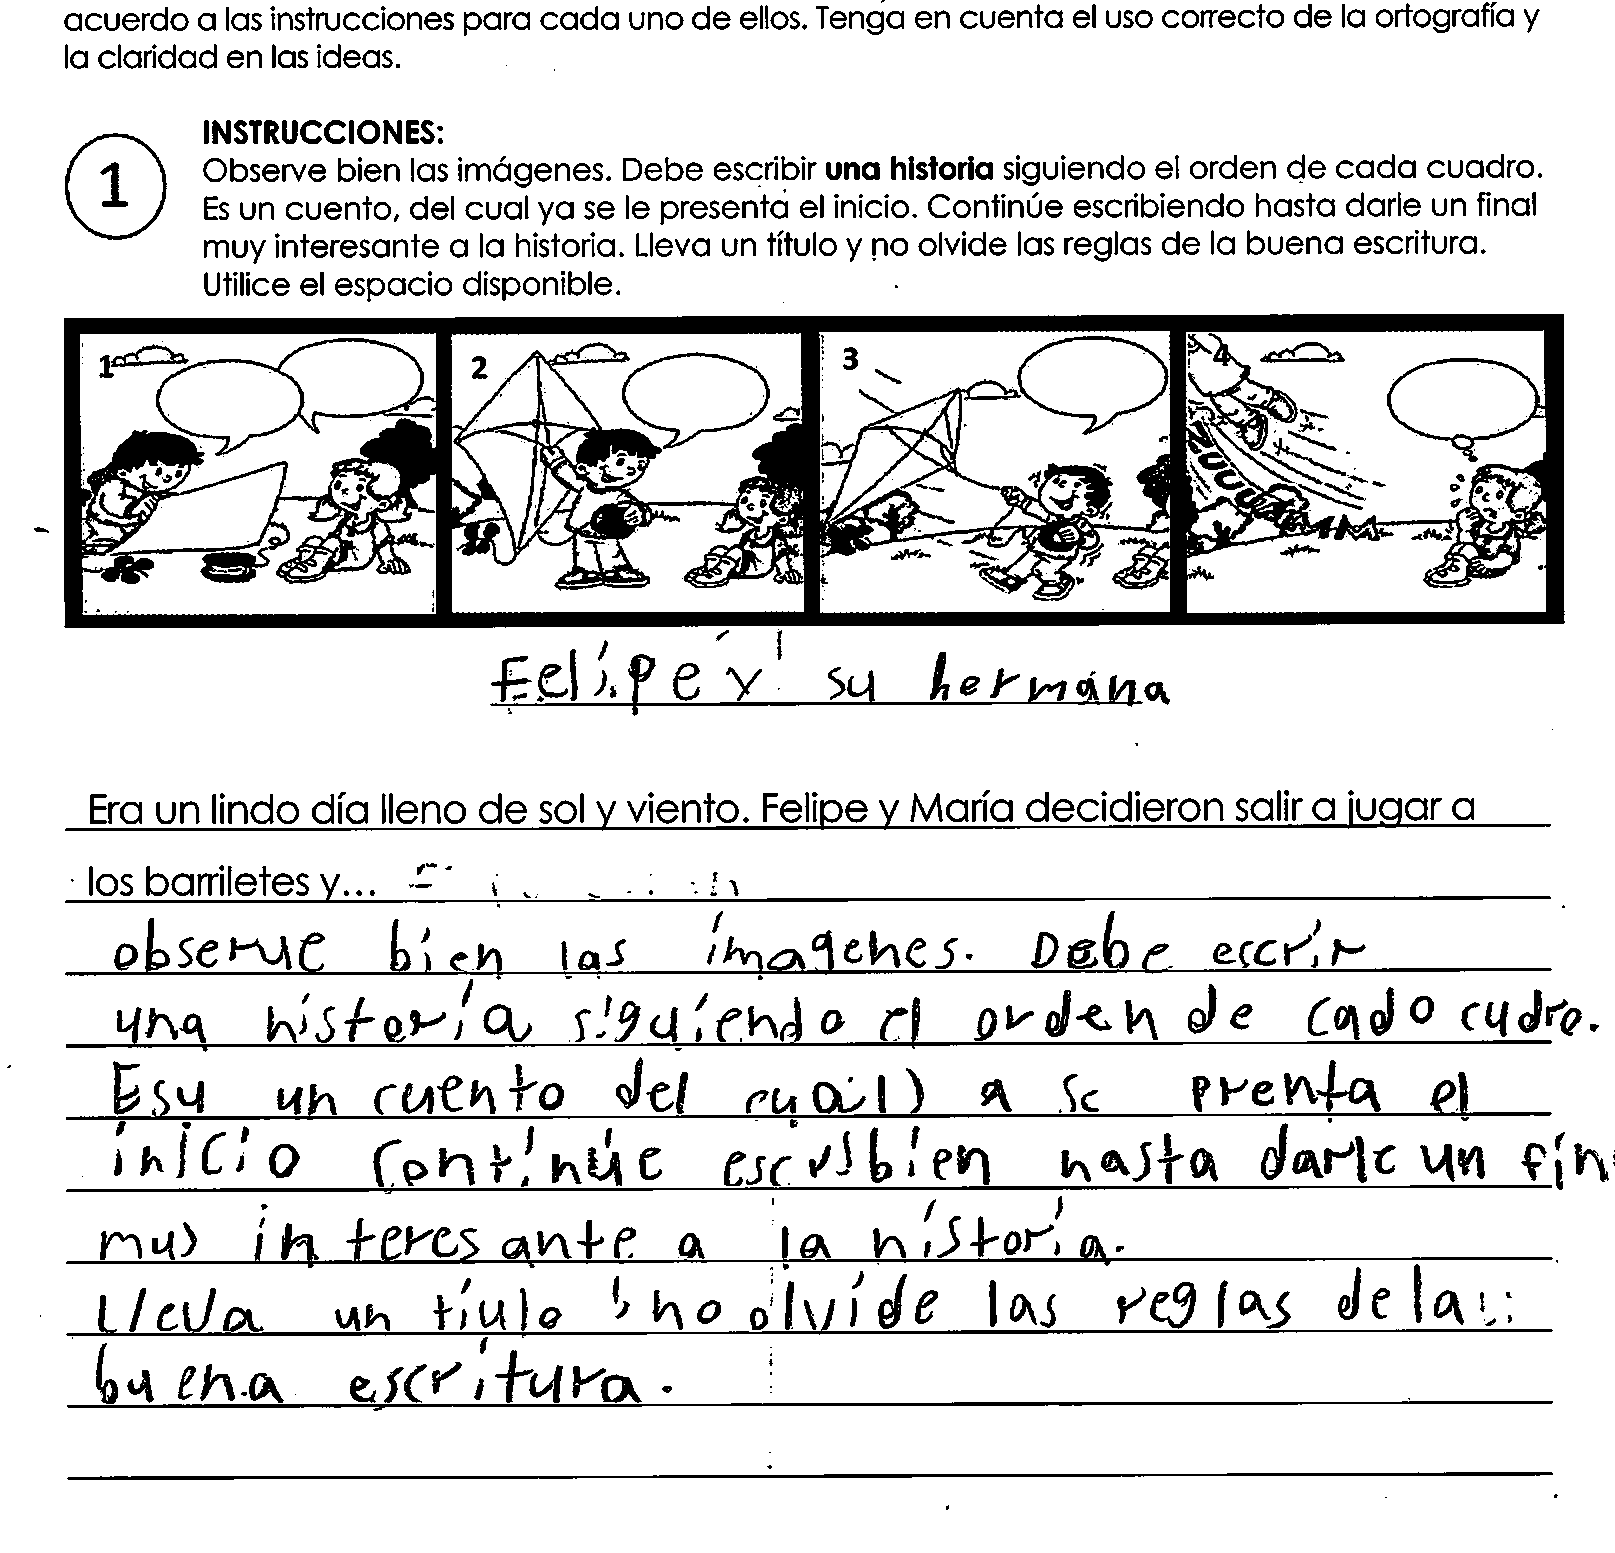 acuerdo a las instrucciones para cada uno de ellos. Tenga en cuenta el uso correcto de la ortografía y
la claridad en las ideas.
1
INSTRUCCIONES:
Observe bien las imágenes. Debe escribir una historia siguiendo el orden de cada cuadro.
Es un cuento, del cual ya se le presenta el inicio. Continúe escribiendo hasta darle un final
muy interesante a la historia. Lleva un título y no olvide las reglas de la buena escritura.
Utilice el espacio disponible.
1 2 3 4
ZUUUUMMM
Felipe y su hermana
Era un lindo día lleno de sol y viento. Felipe y María decidieron salir a jugar a
los barriletes y...
observe bien las imagenes. Debe escrir
una historia siguiendo el orden de cado cudro.
Esu un cuento del a se prenta el
inicio continúe escribien hasta darle un fin
interesante a la historia.
Lleva un tíulo no olvide las reglas de la
buena escritura.